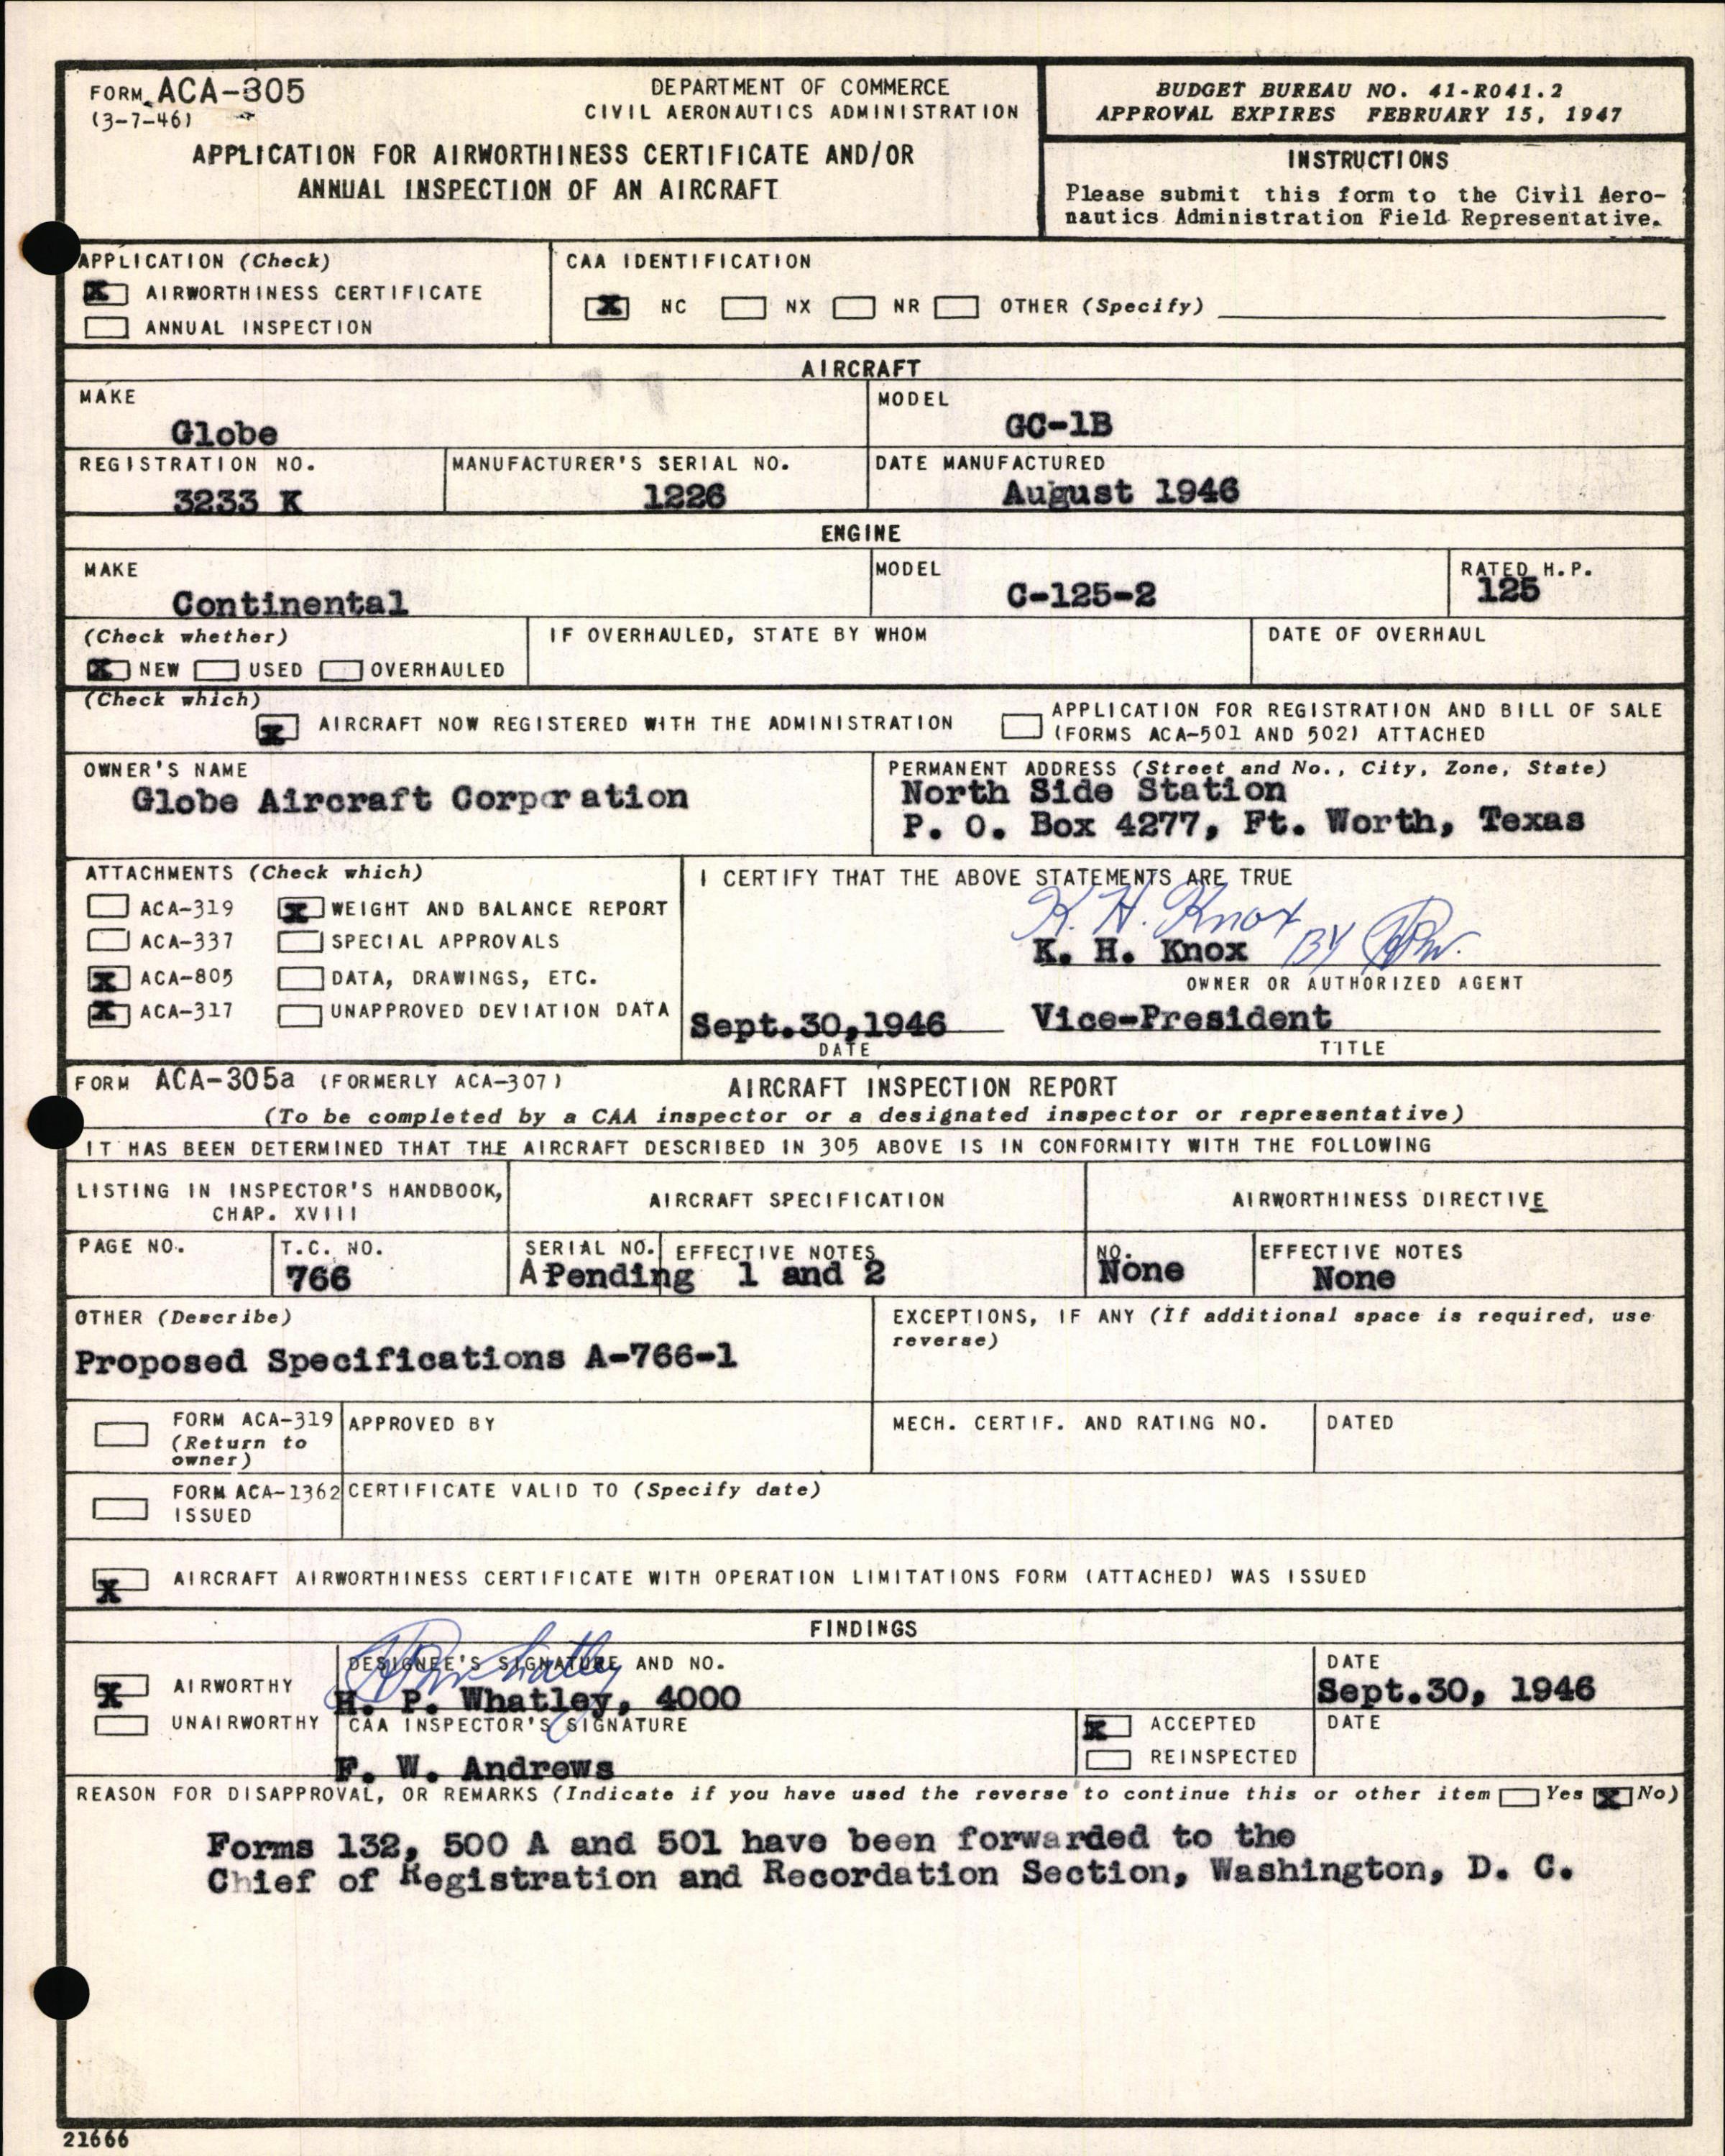 FORM ACA-305
(3-7-46)
DEPARTMENT OF COMMERCE
CIVIL AERONAUTICS ADMINISTRATION
APPLICATION FOR AIRWORTHINESS CERTIFICATE AND/OR
ANNUAL INSPECTION OF AN AIRCRAFT
BUDGET BUREAU NO. 41-R041.2
APPROVAL EXPIRES FEBRUARY 15, 1947
INSTRUCTIONS
Please submit this form to the Civil Aero-
nautics Administration Field Representative.
APPLICATION (Check)
X AIRWORTHINESS CERTIFICATE
ANNUAL INSPECTION
CAA IDENTIFICATION
X NC NX NR OTHER (Specify)
AIRCRAFT
MAKE
Globe
MODEL
GC-1B
REGISTRATION NO.
3233 K
MANUFACTURER'S SERIAL NO.
1226
DATE MANUFACTURED
August 1946
ENGINE
MAKE
Continental
MODEL
C-125-2
RATED H.P.
125
(Check whether)
X NEW USED OVERHAULED
IF OVERHAULED, STATE BY WHOM
DATE OF OVERHAUL
(Check which)
X AIRCRAFT NOW REGISTERED WITH THE ADMINISTRATION
APPLICATION FOR REGISTRATION AND BILL OF SALE
(FORMS ACA-501 AND 502) ATTACHED
OWNER'S NAME
Globe Aircraft Corporation
PERMANENT ADDRESS (Street and No., City, Zone, State)
North Side Station
P. O. Box 4277, Ft. Worth, Texas
ATTACHMENTS (Check which)
ACA-319 X WEIGHT AND BALANCE REPORT
ACA-337 SPECIAL APPROVALS
X ACA-805 DATA, DRAWINGS, ETC.
X ACA-317 UNAPPROVED DEVIATION DATA
I CERTIFY THAT THE ABOVE STATEMENTS ARE TRUE
K. H. Knox BY HPW.
K. H. Knox
OWNER OR AUTHORIZED AGENT
Sept.30,1946 Vice-President
DATE TITLE
FORM ACA-305a (FORMERLY ACA-307) AIRCRAFT INSPECTION REPORT
(To be completed by a CAA inspector or a designated inspector or representative)
IT HAS BEEN DETERMINED THAT THE AIRCRAFT DESCRIBED IN 305 ABOVE IS IN CONFORMITY WITH THE FOLLOWING
LISTING IN INSPECTOR'S HANDBOOK,
CHAP. XVIII
AIRCRAFT SPECIFICATION
AIRWORTHINESS DIRECTIVE
PAGE NO.
T.C. NO.
766
SERIAL NO. EFFECTIVE NOTES
A Pending 1 and 2
NO.
None
EFFECTIVE NOTES
None
OTHER (Describe)
Proposed Specifications A-766-1
EXCEPTIONS, IF ANY (If additional space is required, use
reverse)
FORM ACA-319
(Return to
owner)
APPROVED BY
MECH. CERTIF. AND RATING NO.
DATED
FORM ACA-1362
ISSUED
CERTIFICATE VALID TO (Specify date)
X AIRCRAFT AIRWORTHINESS CERTIFICATE WITH OPERATION LIMITATIONS FORM (ATTACHED) WAS ISSUED
FINDINGS
X AIRWORTHY
UNAIRWORTHY
DESIGNEE'S SIGNATURE AND NO.
HPWhatley
H. P. Whatley, 4000
DATE
Sept.30, 1946
CAA INSPECTOR'S SIGNATURE
F. W. Andrews
X ACCEPTED
REINSPECTED
DATE
REASON FOR DISAPPROVAL, OR REMARKS (Indicate if you have used the reverse to continue this or other item Yes X No)
Forms 132, 500 A and 501 have been forwarded to the
Chief of Registration and Recordation Section, Washington, D. C.
21666